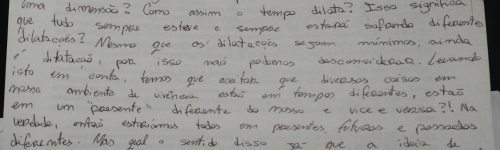 uma dimensão? Como assim o tempo dilata? Isso significa
que tudo sempre esteve e sempre estará sofrendo diferentes
dilatações? Mesmo que as dilatações sejam mínimas, ainda
é dilatação, por isso não podemos desconsiderar. Levando
isto em conta, temos que aceitar que diversas coisas em
nosso ambiente de vivência estão em tempos diferentes, estão
em um "presente" diferente do nosso e vice e versa?! Na
verdade, então estaríamos todos em presentes, futuros e passados
diferentes. Mas qual o sentido disso já que a ideia de